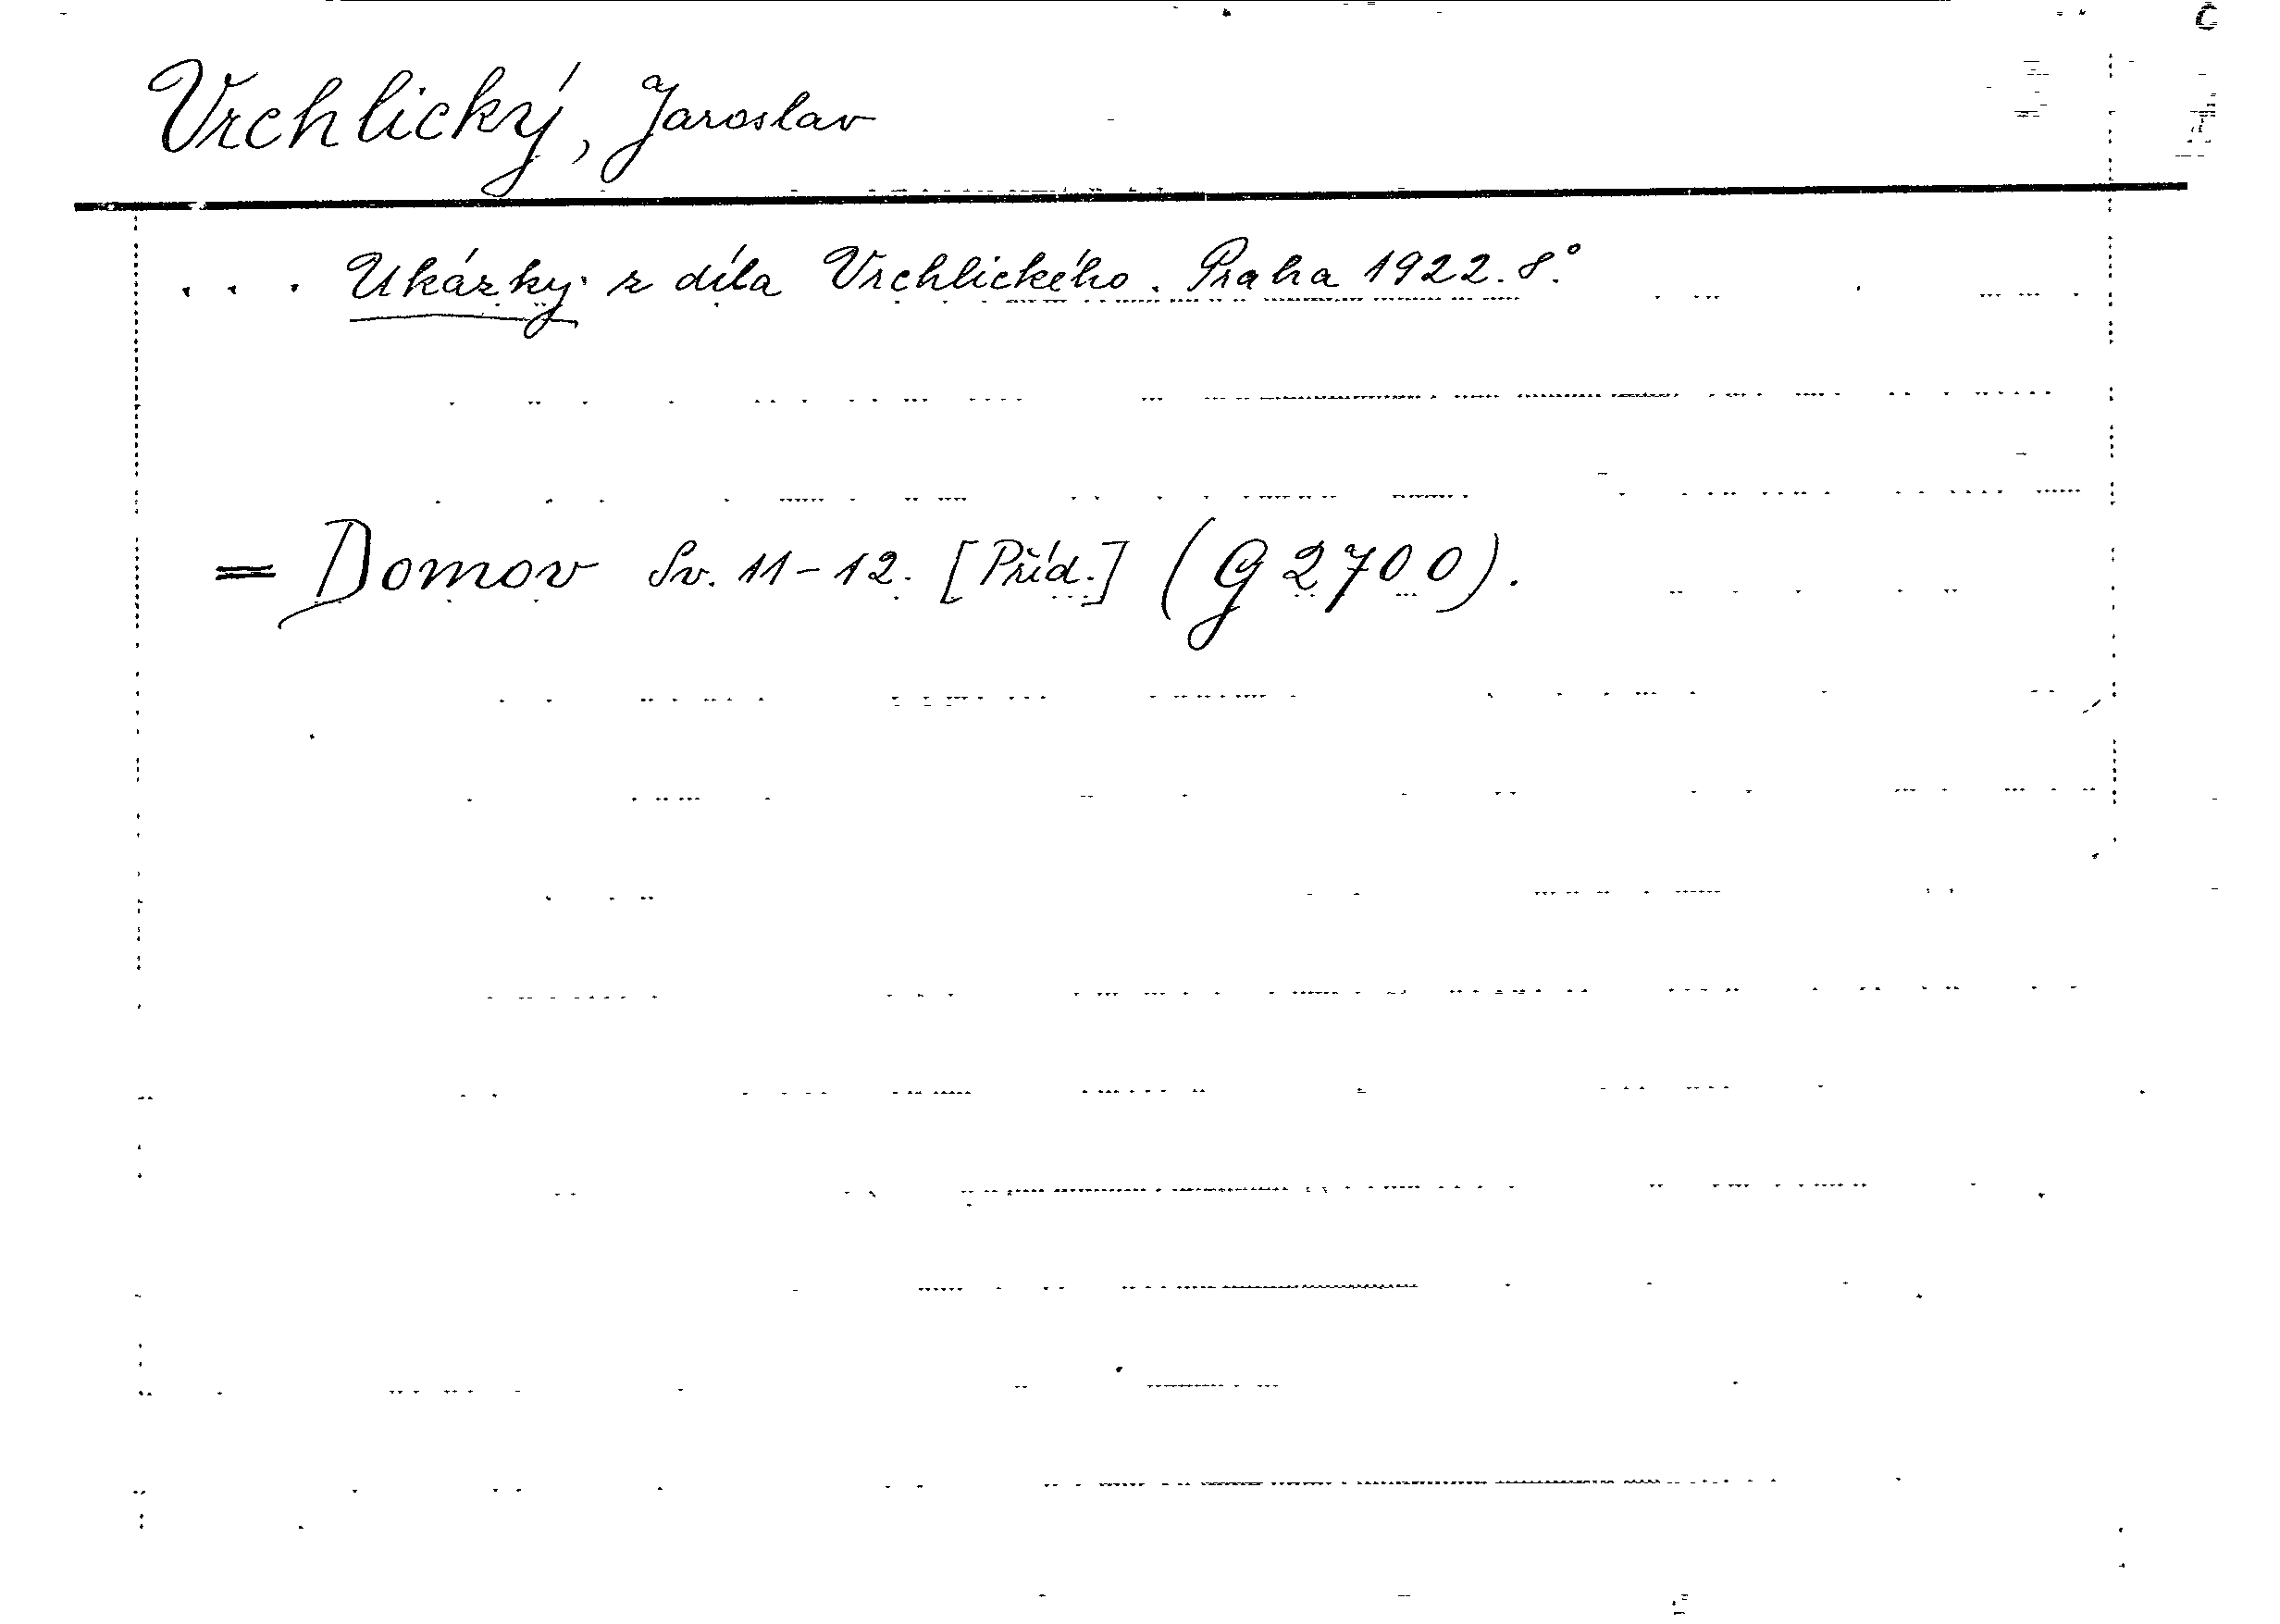 Vrchlický, Jaroslav
. . . Ukázky z díla Vrchlického. Praha 1922. 8°.
= Domov Sv. 11-12. [Příd.] (G 2700).